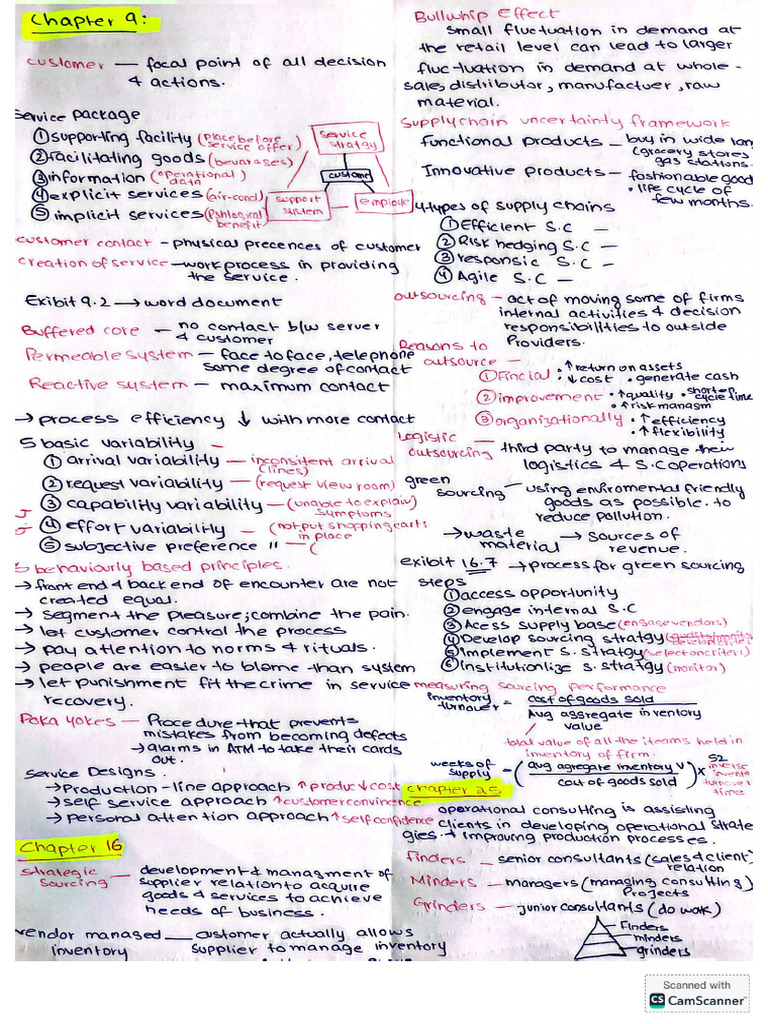 Chapter 9:
customer — focal point of all decision
& actions.
Service Package
① supporting facility (place before
service offer)
② facilitating goods (bevarases)
③ information (operational)
data
④ explicit services (air-cond)
⑤ implicit services (pshlogical
benefit)
service
stratgy
custome
support
system
employe
customer contact - physical precences of customer
creation of service — work process in providing
the service.
Exibit 9.2 → word document
Buffered core — no contact b/w server
& customer
Permeable system — face to face, telephone
some degree of contact
Reactive system — maximum contact
→ process efficiency ↓ with more contact
5 basic variability —
① arrival variability — inconsitent arrival
(lines)
② request variability — (request view room)
③ capability variability — (unable to explain)
symptoms
④ effort variability — (not put shopping carts
in place
⑤ subjective preference " — (
5 behaviourly based principles.
→ front end & back end of encounter are not
created equal.
→ segment the pleasure; combine the pain.
→ let customer control the process
→ pay attention to norms & rituals.
→ people are easier to blome than system
→ let punishment fit the crime in service
recovery.
Poka yokes — Procedure that prevent
mistakes from becoming defects
→ alarms in ATM to take their cards
out.
Service Designs.
→ Production-line approach ↑ produc ↓ cost
→ self service approach ↑ customer convinence
→ personal attention approach ↑ self confidence
Chapter 16
strategic
sourcing — development & managment of
supplier relation to acquire
goods & services to achieve
needs of business.
vendor managed — customer actually allows
inventory supplier to manage inventory
Bullwhip Effect
small fluctuation in demand at
the retail level can lead to larger
fluc-tuation in demand at whole-
sale, distributor, manufactuer, raw
material.
Supply chain uncertainty framework
Functional products — buy in wide ran
(grocery stores
gas stations.
Innovative products — fashonable good
• life cycle of
few months.
4 types of supply chains
① Efficient S.C —
② Risk hedging S.C —
③ responsic S.C —
④ Agile S.C —
outsourcing — act of moving some of firms
internal activities & decision
responsibilities to outside
Providers.
Reasons to
outsource —
① Fincial : ↑ return on assets
↓ cost • generate cash
② improvement • ↑ quality • short-n
cycle time
• ↑ risk managm
③ organizationally • ↑ efficiency
• ↑ flexibility
Logistic
outsourcing — third party to manage their
logistics & S.C operations
green
sourcing — using enviromental friendly
goods as possible. to
reduce pollution.
→ waste
material → sources of
revenue.
exibit 16.7 → process for green sourcing
steps
① access opportunity
② engage internal S.C
③ Acess supply base (engase vendors)
④ Develop sourcing stratgy
⑤ Implement S. stratgy (select on criteri)
⑥ Institutionlize S. stratgy (monitor)
measuring sourcing performance
inventory
turnover = cost of goods sold
Avg aggregate inventory
value
total value of all the iteams held in
inventory of firm.
weeks of
supply = (avg agregate inventory v
cost of goods sold) x 52
inverse
invento
turnover
times
Chapter 25
operational consulting is assisting
clients in developing operational strate
gies. & improving production processes.
Finders — senior consultants (sales & client)
relation
Minders — managers (managing consulting)
Projects
Grinders — junior consultants (do work)
Finders
minders
grinders
Scanned with
CS CamScanner